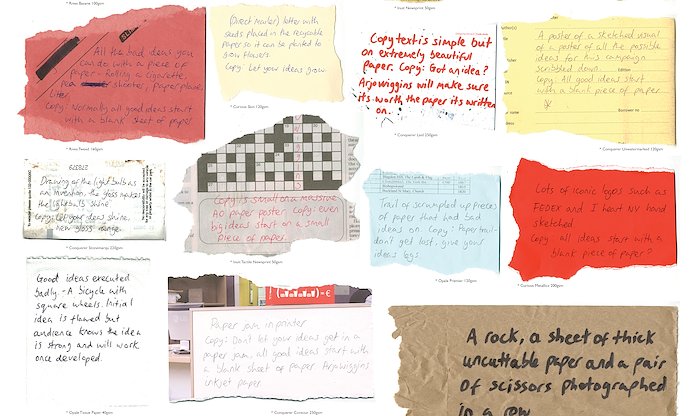 * Rives Basane 100gsm
* Inuit Newsprint 50gsm
All the bad ideas you
can do with a piece of
paper - Rolling a cigarette,
pea shooter, paper plane,
Liter.
Copy: Normally all good ideas start
with a blank sheet of paper
* Rives Tweed 160gsm
(Direct marker) letter with
seeds placed in the recycable
paper so it can be planted to
grow flowers.
Copy: Let your ideas grow.
* Curious Skin 120gsm
Copy text is simple but
on extremely beautiful
paper. Copy: Got an idea?
Arjowiggins will make sure
its worth the paper its written
on.
* Conqueror Laid 250gsm
A poster of a sketched visual
of a poster of all the possible
ideas for this campaign
scribbled down.
Copy: All good ideas start
with a blank piece of paper
Edition
Borrower no
* Conqueror Unwatermarked 120gsm
578372
Drawing of the light bulb as
an invention, the gloss makes
the light bulb shine
copy: Let your ideas shine.
new gloss range.
* Conqueror Stonemarqu 220gsm
Copy is small on a massive
A0 paper poster. Copy: even
big ideas start on a small
piece of paper.
* Inuit Tactile Newsprint 50gsm
Trail of scrumpled up pieces
of paper that had bad
ideas on Copy: Paper trail-
dont get lost, give your
ideas legs
* Opale Premier 120gsm
Lots of iconic logos such as
FEDEX and I heart NY hand
sketched
Copy: all ideas start with a
blank piece of paper?
* Curious Metallics 200gsm
Good ideas executed
badly - A bicycle with
square wheels. Initial
idea is flawed but
audience knows the idea
is strong and will work
once developed.
* Opale Tissue Paper 40gsm
Paper jam in printer
Copy: Dont let your ideas get in a
paper jam, all good ideas start with
a blank sheet of paper Arjowiggins
inkjet paper
* Conqueror Contour 250gsm
A rock, a sheet of thick
uncuttable paper and a pair
of scissors photographed
in a row